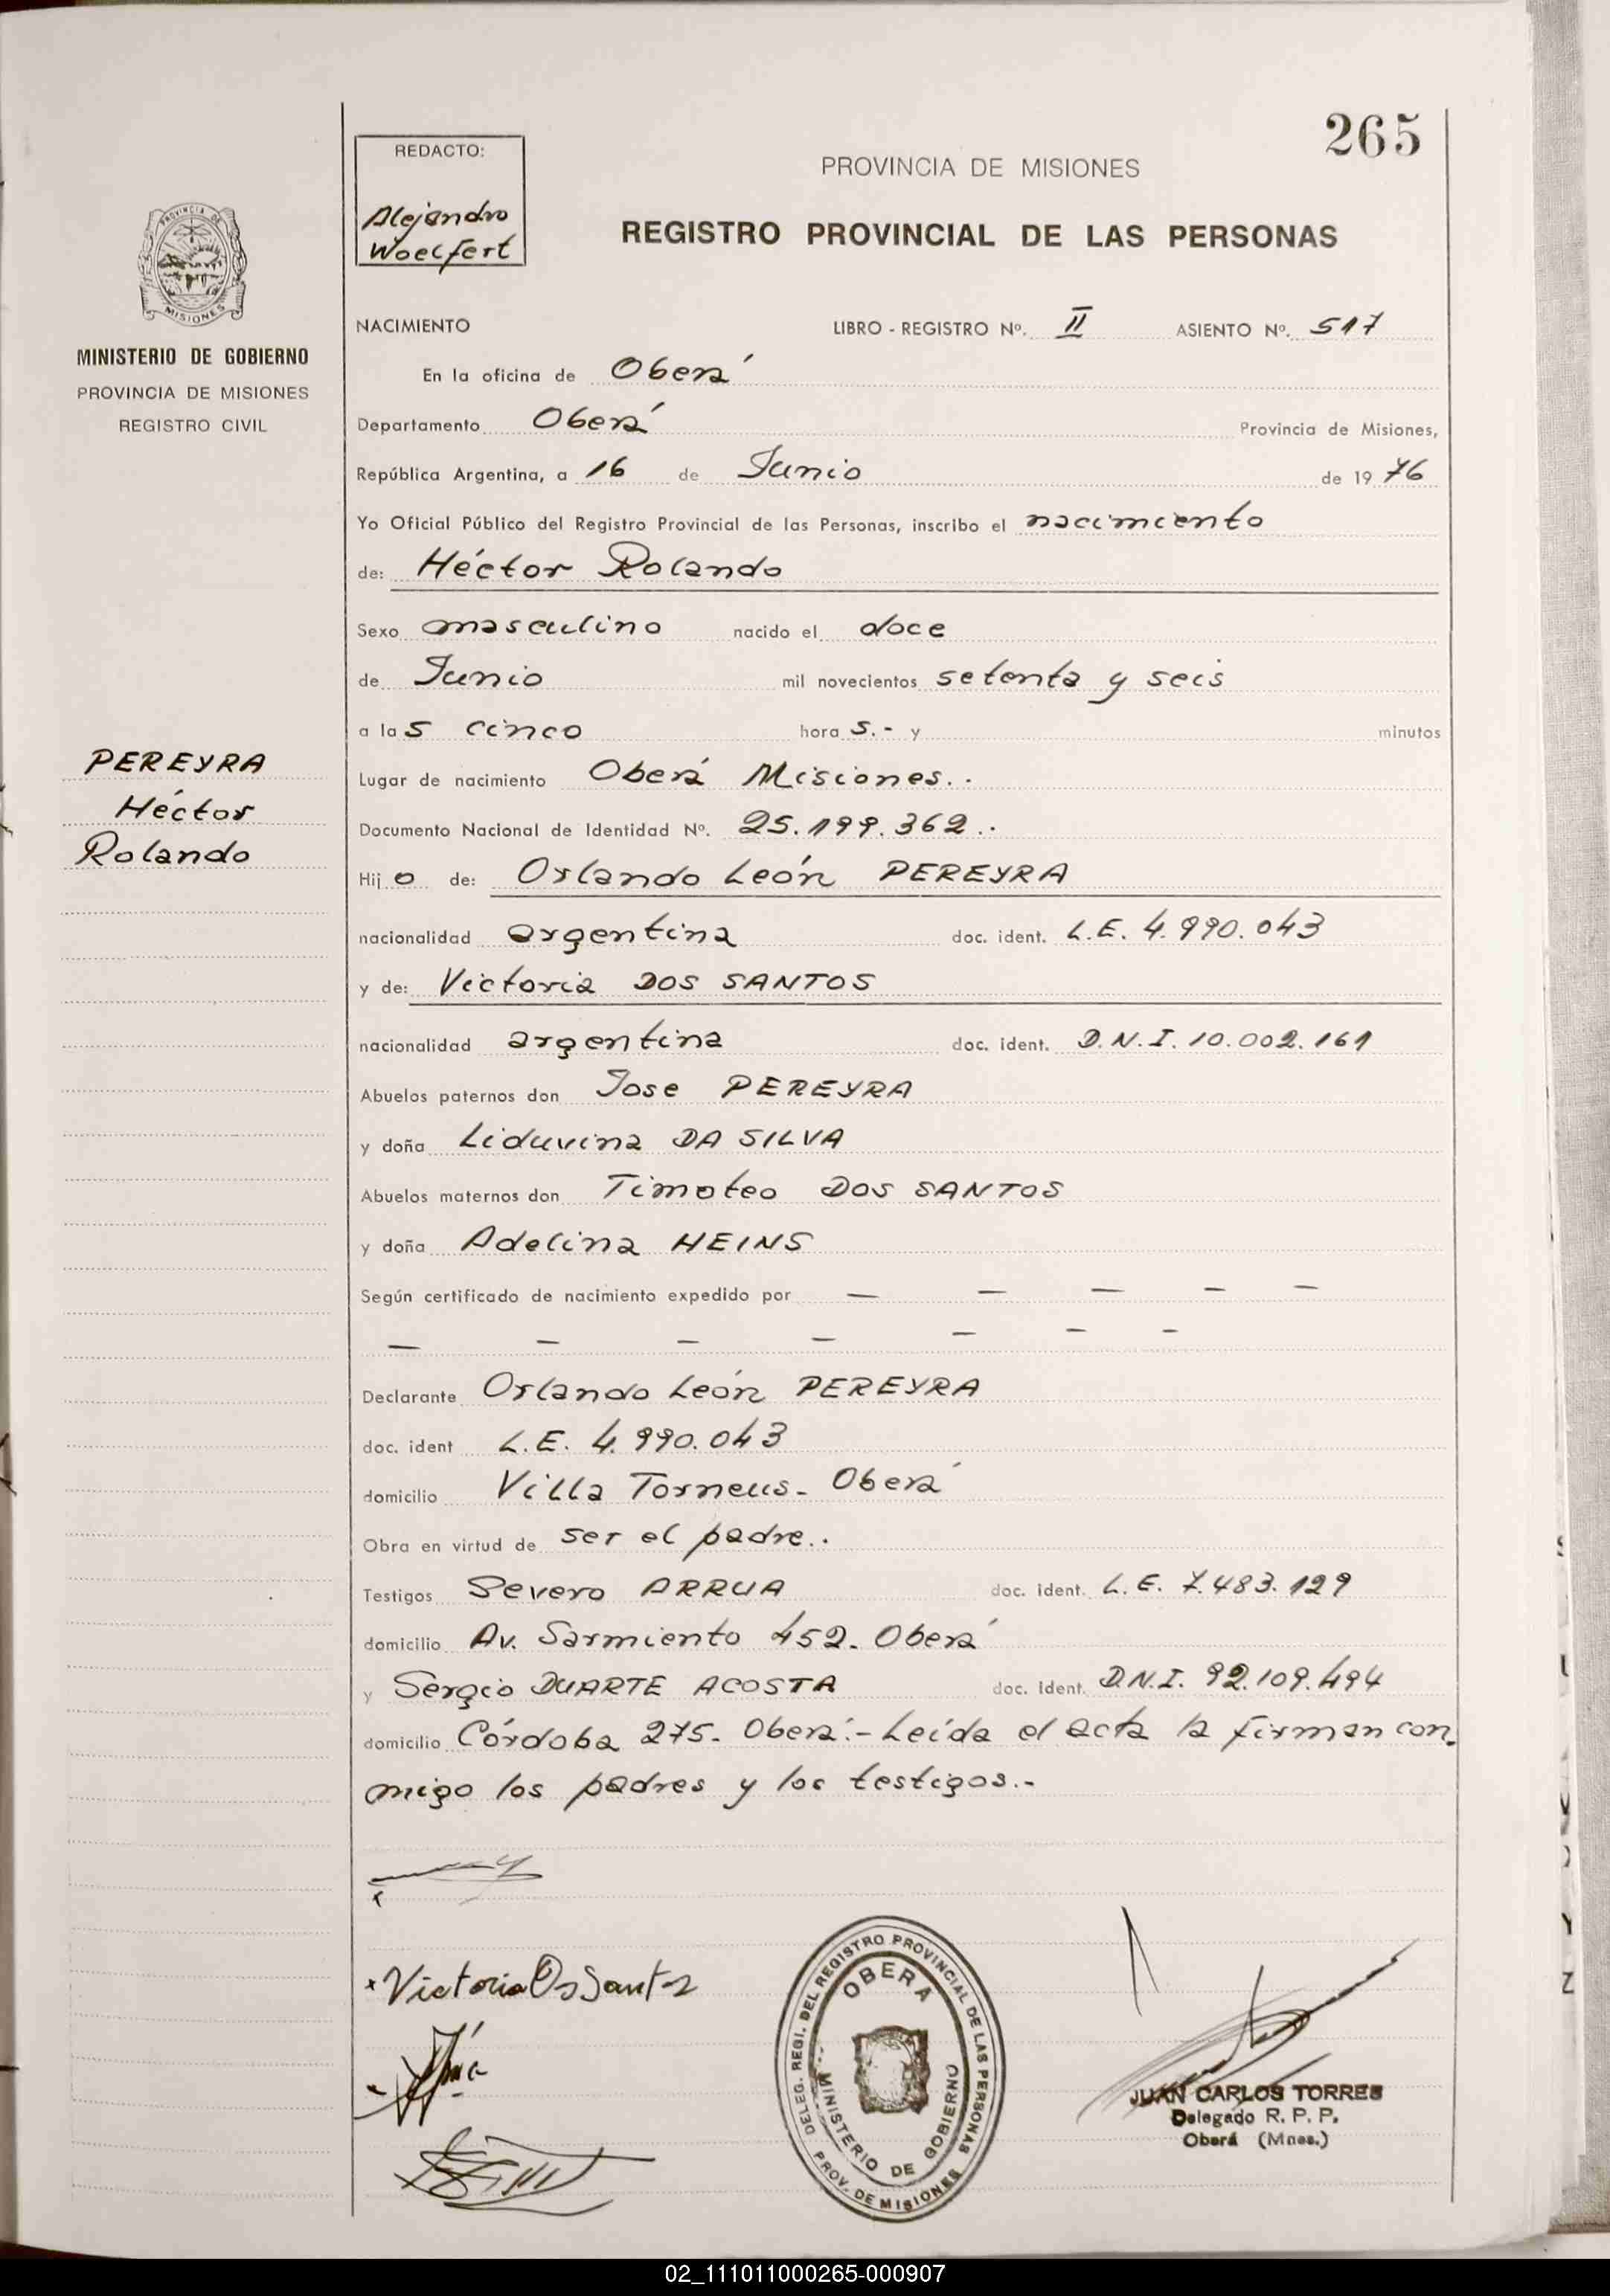 265
REDACTO:
Alejandro
Woelfert
PROVINCIA DE MISIONES
REGISTRO PROVINCIAL DE LAS PERSONAS
PROVINCIA DE
MISIONES
MINISTERIO DE GOBIERNO
PROVINCIA DE MISIONES
REGISTRO CIVIL
NACIMIENTO LIBRO - REGISTRO Nº. II ASIENTO Nº. 517
En la oficina de Oberá
Departamento Oberá Provincia de Misiones,
República Argentina, a 16 de Junio de 19 76
Yo Oficial Público del Registro Provincial de las Personas, inscribo el nacimiento
de: Héctor Rolando
Sexo masculino nacido el doce
de Junio mil novecientos setenta y seis
a la s cinco hora s.- y minutos
PEREYRA
Héctor
Rolando
Lugar de nacimiento Oberá Misiones..
Documento Nacional de Identidad Nº. 25.199.362..
Hij o de: Orlando León PEREYRA
nacionalidad argentina doc. ident. L.E. 4.990.043
y de: Victoria DOS SANTOS
nacionalidad argentina doc. ident. D.N.I. 10.002.161
Abuelos paternos don Jose PEREYRA
y doña Liduvina DA SILVA
Abuelos maternos don Timoteo DOS SANTOS
y doña Adelina HEINS
Según certificado de nacimiento expedido por — — — — —
— — — — — — —
Declarante Orlando León PEREYRA
doc. ident L.E. 4.990.043
domicilio Villa Torneus - Oberá
Obra en virtud de ser el padre..
Testigos Severo ARRUA doc. ident. L.E. 7.483.129
domicilio Av. Sarmiento 452. Oberá
y Sergio DUARTE ACOSTA doc. ident. D.N.I. 92.109.494
domicilio Córdoba 275- Oberá.- Leída el acta la firman con
migo los padres y los testigos.-
Victoria Dos Santos
DELEG. REGI. DEL REGISTRO PROVINCIAL DE LAS PERSONAS
OBERA
MINISTERIO DE GOBIERNO
PROV. DE MISIONES
JUAN CARLOS TORRES
Delegado R. P. P.
Oberá (Mnes.)
02_111011000265-000907